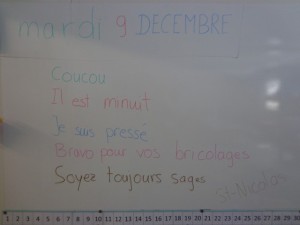 mardi 9 DECEMBRE
Coucou
Il est minuit
Je suis pressé
Bravo pour vos bricolages
Soyez toujours sages
St-Nicolas
0 1 2 3 4 5 6 7 8 9 10 11 12 13 14 15 16 17 18 19 20 21 22 23 24 25 26 27 28 29 30